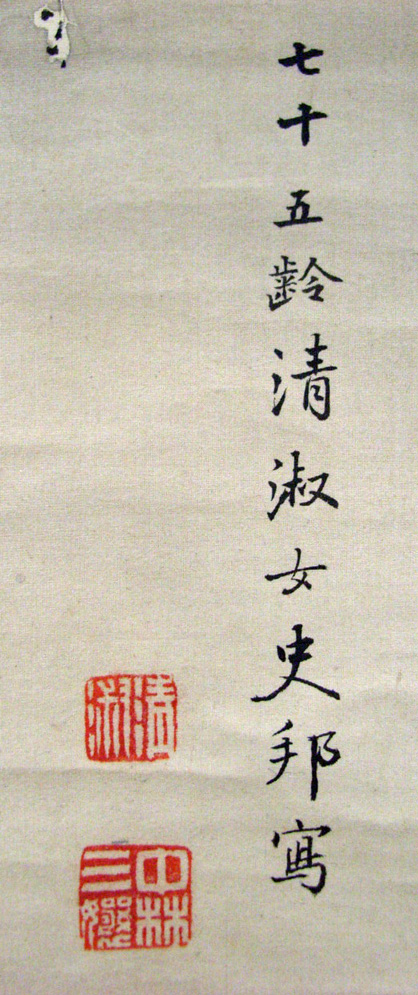 七十五齢清淑女史邦寫
清淑
中林三孃